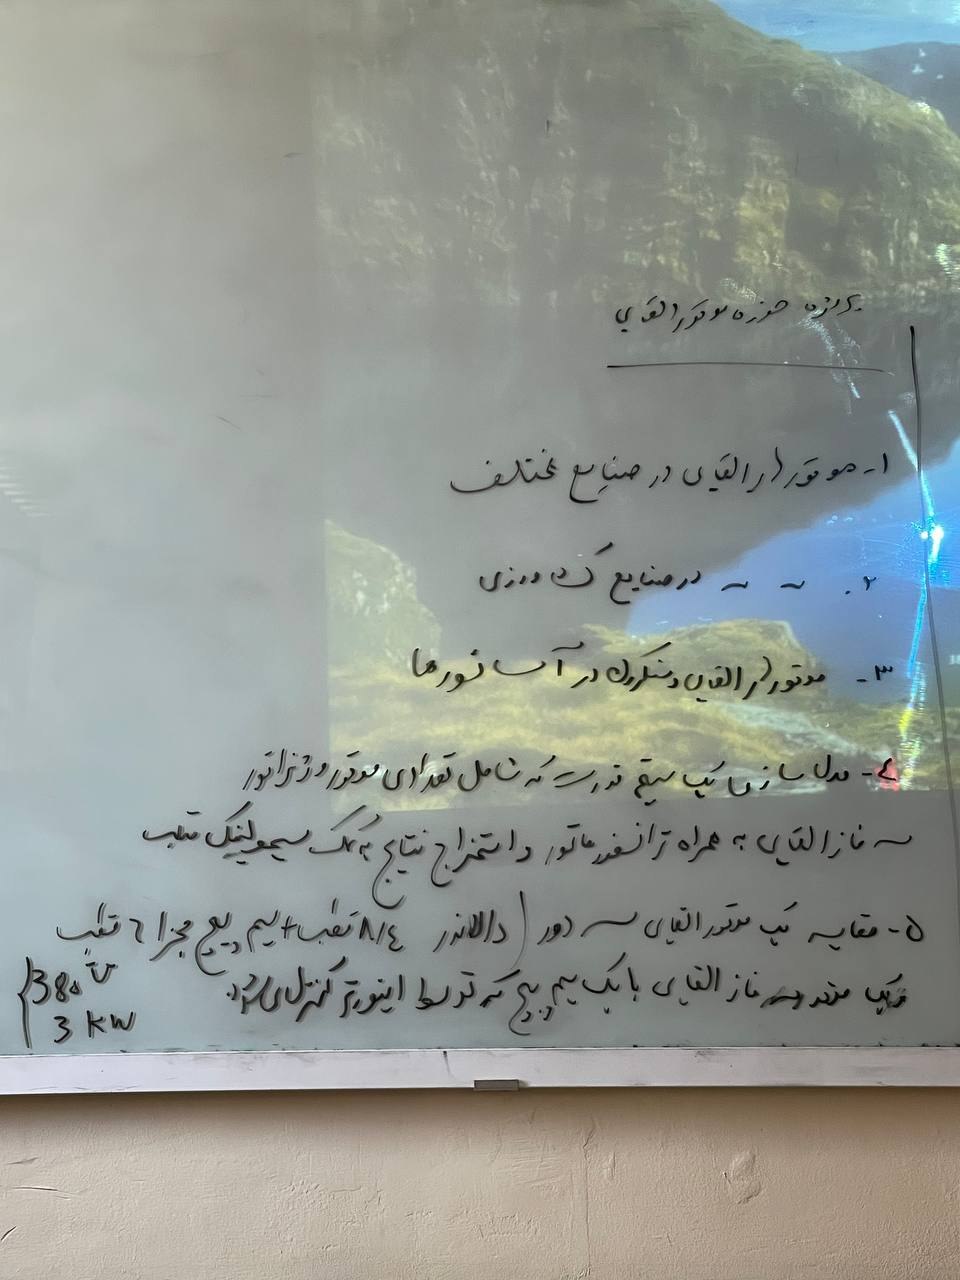 پروژه حوزه موتور القایی
۱- موتورهای القایی در صنایع مختلف
۲- ~ ~ در صنایع کشاورزی
۳- موتورهای القایی و سنکرون در آسانسورها
۴- مدلسازی یک سیستم قدرت که شامل تعدادی موتور و ژنراتور
سه فاز القایی به همراه ترانسفورماتور و استخراج نتایج به کمک سیمولینک متلب
۵- مقایسه یک موتور القایی سه دور (دالاندر ۸/۴ قطب + سیم پیچ مجزا ۶ قطب
و یک موتور سه فاز القایی با یک سیم پیچ که توسط اینورتر کنترل می شود.
380 V
3 KW